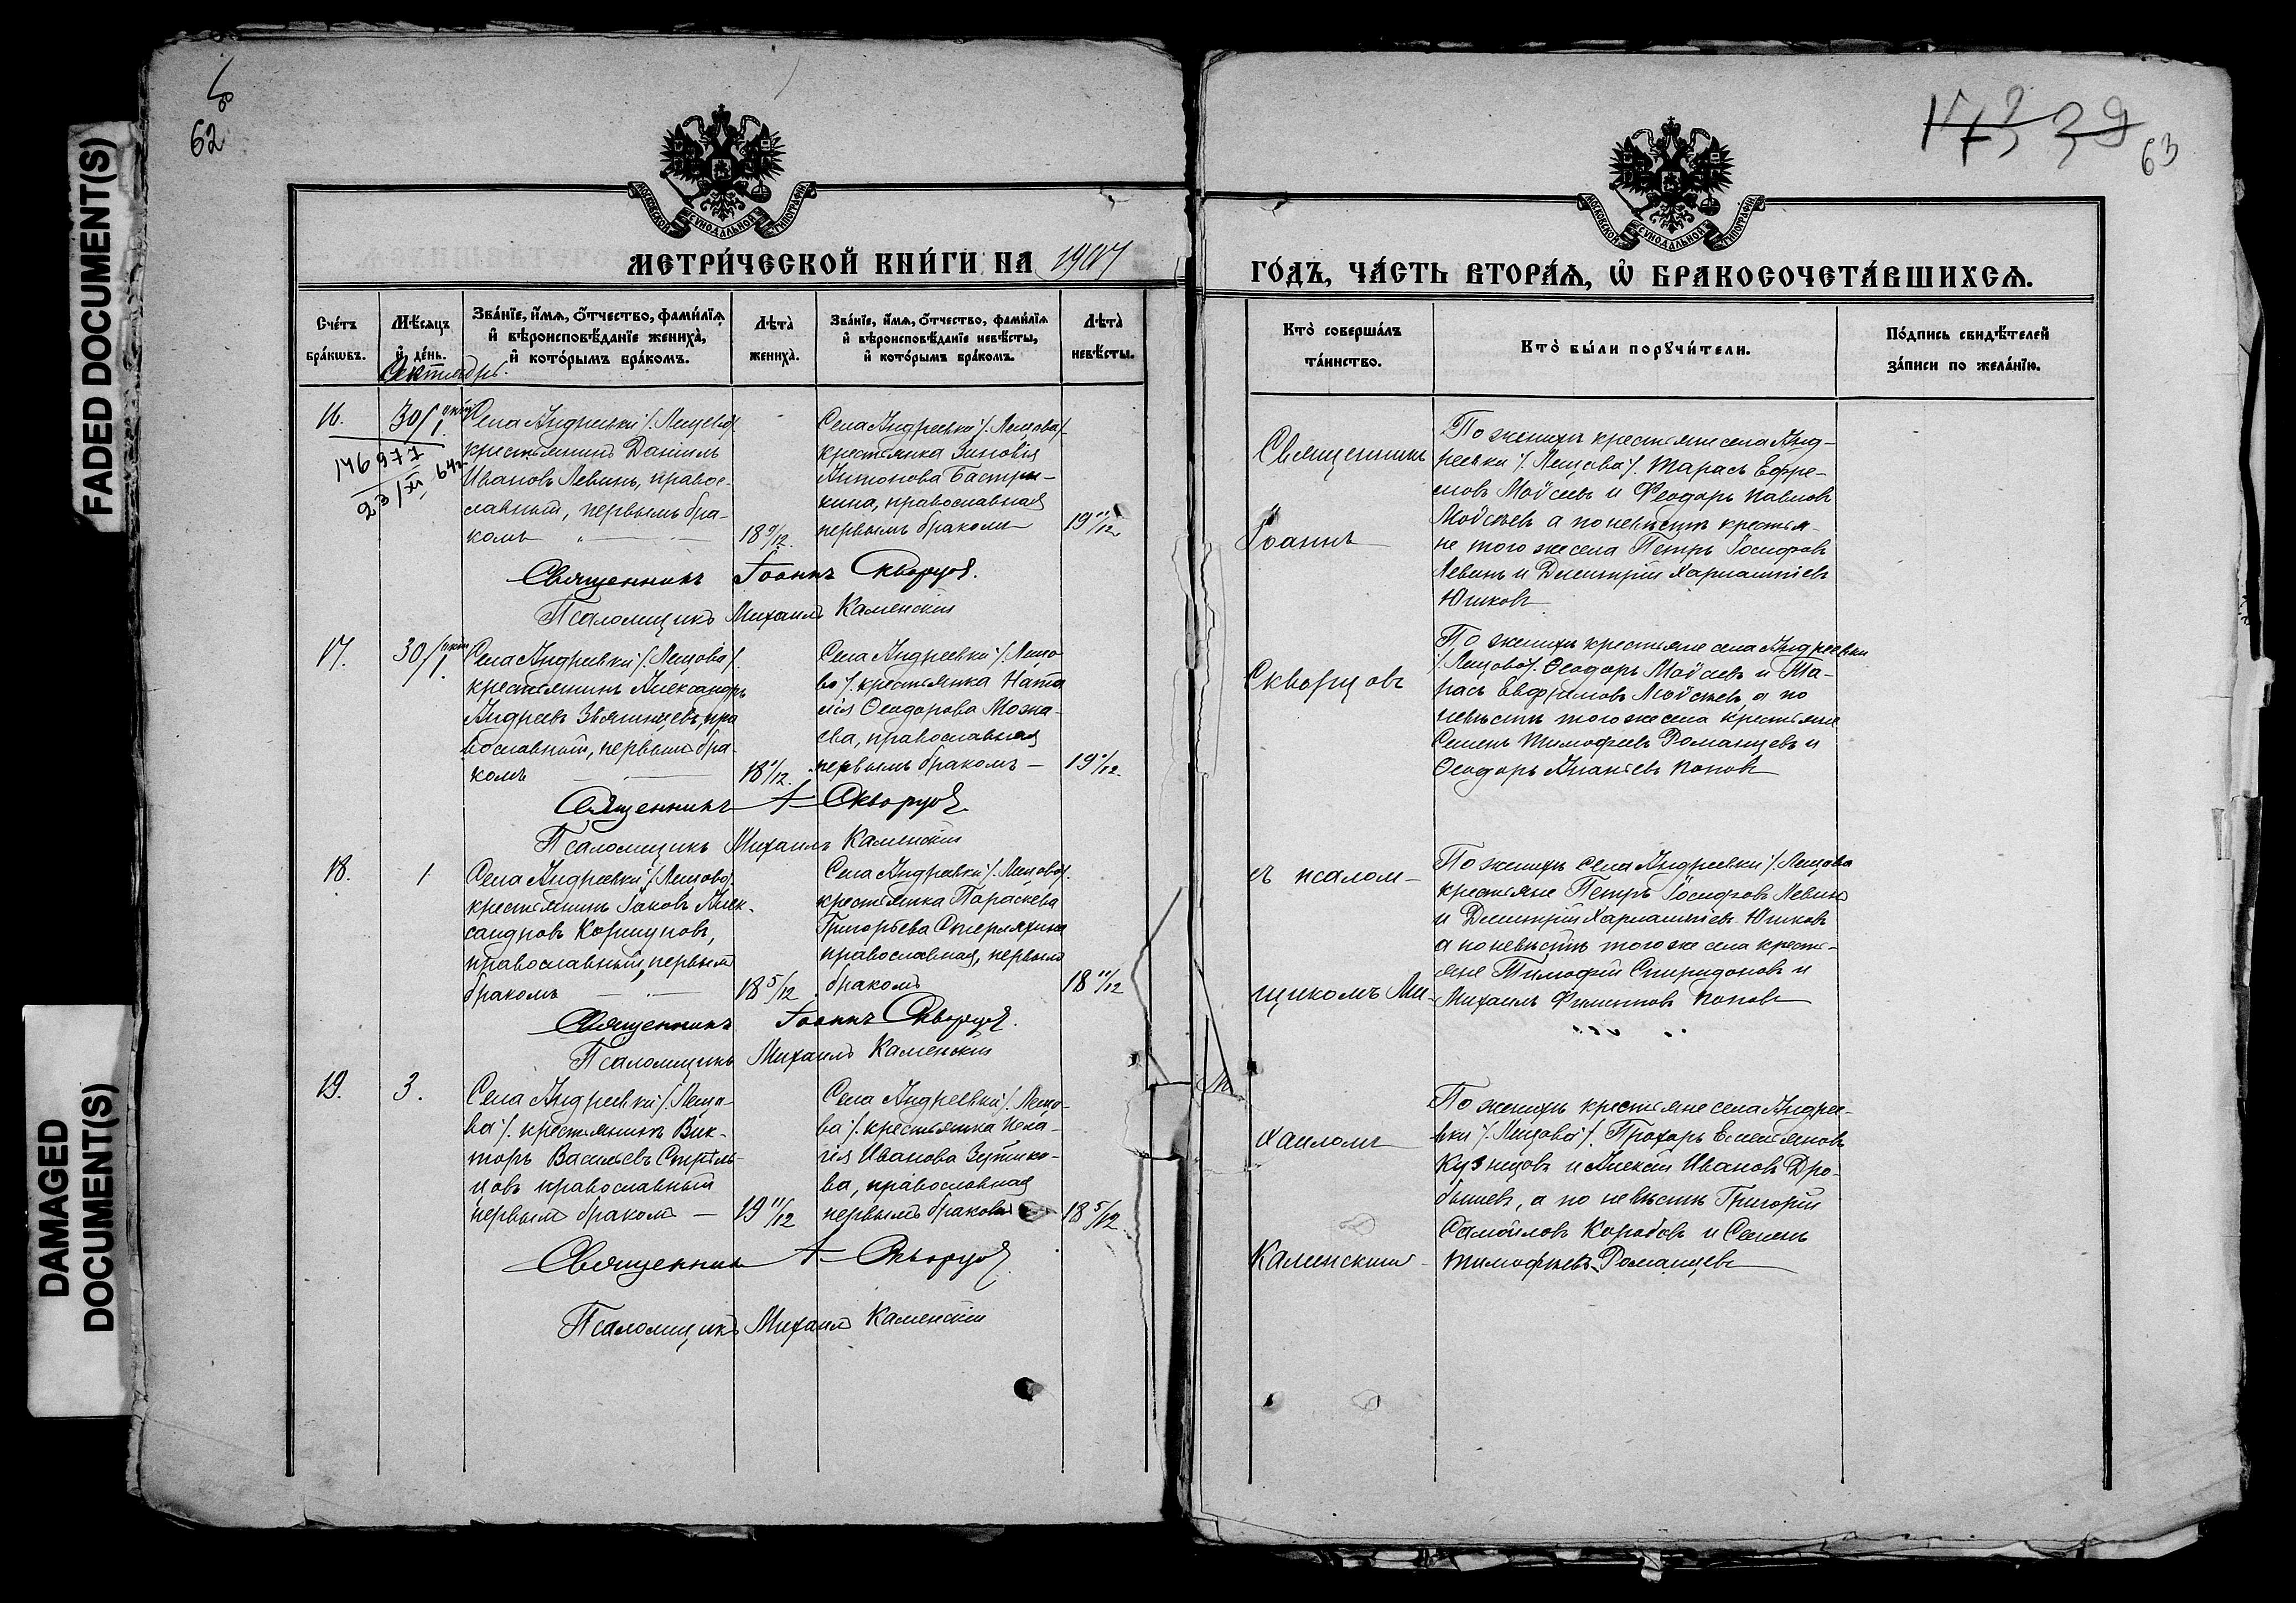 FADED DOCUMENT(S)
DAMAGED
DOCUMENT(S)
62
МОСКОВСКОЙ СѴНОДАЛЬНОЙ ТИПОГРАФІИ
МЕТРИ́ЧЕСКОЙ КНИ́ГИ НА
Сче́тъ бра́кѡвъ.
Мѣ́сяцъ и҆ де́нь.
Зва́нїе, и҆́мѧ, ѻ҆́тчество, фами́лїѧ и҆ вѣроисповѣ́данїе жениха̀, и҆ кото́рымъ бра́комъ.
Лѣта̀ жениха̀.
Зва́нїе, и҆́мѧ, ѻ҆́тчество, фами́лїѧ и҆ вѣроисповѣ́данїе невѣ́сты, и҆ кото́рымъ бра́комъ.
Лѣта̀ невѣ́сты.
16.
30/1
146977
23/XI 64
Села Андреевки /Лещево/
крестьянинъ Даніилъ
Ивановъ Левинъ, право-
славный, первымъ бра-
комъ
18 9/12.
Села Андреевки /Лещова/
крестьянка Зиновія
Антонова
кина, православная
первымъ бракомъ
19 11/12
Священникъ Іоаннъ Скворцов.
Псаломщикъ Михаилъ Каменскій
17.
30/1
Села Андреевки /Лещова/
крестьянинъ Александръ
Андреевъ Звягинцевъ, пра
вославный, первымъ бра-
комъ
18 1/12.
Села Андреевки /Лещо
во/ крестьянка Ната
лія Ѳеодорова
ева, православная
первымъ бракомъ
19 1/12.
Священникъ І Скворцов
Псаломщикъ Михаилъ Каменскій
18.
1
Села Андреевки /Лещово/
крестьянинъ Іаковъ Алек-
сандровъ Коршуновъ,
православный, первымъ
бракомъ
18 5/12
Села Андреевки /Лещово/.
крестьянка Параскева
Григорьева Стерляхина
православная, первымъ
бракомъ
18 11/12
Священникъ Іоаннъ Скворцов.
Псаломщикъ Михаилъ Каменскій
19.
3.
Села Андреевки /Леща-
ва/ крестьянинъ Вик-
торъ Васильевъ Стрѣль-
цовъ православный
первымъ бракомъ
19 11/12
Села Андреевки /Лещо-
ва/ крестьянка Пела-
гія Иванова
ва, православная
первымъ бракомъ
18 5/12
Священникъ І Скворцов
Псаломщикъ Михаилъ Каменскій
63
МОСКОВСКОЙ СѴНОДАЛЬНОЙ ТИПОГРАФІИ
ГО́ДЪ, ЧА́СТЬ ВТОРА́Ѧ, Ѡ҆ БРАКОСОЧЕТА́ВШИХСѦ.
Кто̀ соверша́лъ та́инство.
Кто̀ бы́ли порꙋчи́тели.
По́дпись свидѣ́телей за́писи по жела́нїю.
Священникъ
Іоаннъ
Скворцовъ
съ псалом-
щикомъ Ми-
хаиломъ
Каменскимъ
По женихѣ крестьяне села Анд-
реевки /Лещева/. Тарасъ Ефре-
мовъ Мойсеевъ и Ѳеодоръ Павловъ
Мойсѣевъ а по невѣстѣ крестья-
не того же села Петръ Іосифовъ
Левинъ и Димитрій Харлампіевъ
Юшковъ
По женихѣ крестьяне села Андреевки
/Лещово/. Ѳеодоръ Мойсеевъ и Та-
расъ Евфимовъ Мойсѣевъ, а по
невѣстѣ того же села крестьяне
Семенъ Тимофеевъ Романцевъ и
Ѳеодоръ Ананьевъ Поповъ
По женихѣ села Андреевки /Лещова
крестьяне Петръ Іосифовъ Левинъ
и Димитрій Харлампіевъ Юшковъ
а по невѣстѣ того же села кресть-
яне Тимофей Спиридоновъ и
Михаилъ Филипповъ Поповъ
По женихѣ крестьяне села Андре-
евки /Лещова/. Прохоръ Емельяновъ
Кузнецовъ и Алексѣй Ивановъ Дро-
бышевъ, а по невѣстѣ Григорій
Самойловъ Коробовъ и Семенъ
Тимофѣевъ Романцевъ